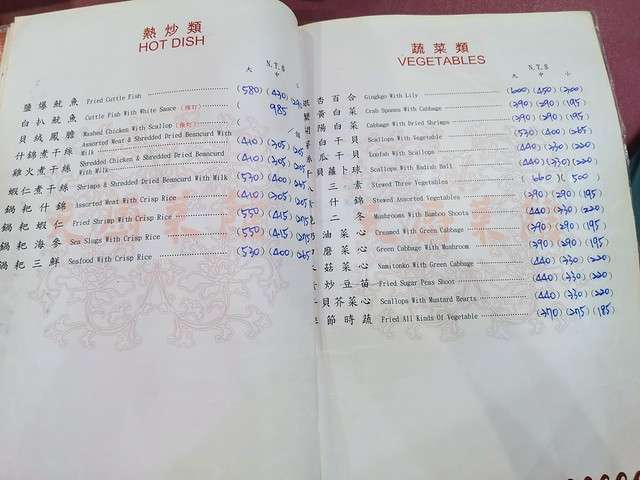 熱炒類
HOT DISH
N.T.$
大 中
鹽爆魷魚 Fried Cuttle Fish (580) (430)
白扒魷魚 Cuttle Fish With White Sauce (預訂) ( 985
貝絨鳳膽 Mushed Chicken With Scallop (預訂) (
什錦煮干絲 Assorted Meat & Shredded Dried Beancurd With Milk (410) (305) (205
雞火煮干絲 Shredded Chicken & Shredded Dried Beancurd With Milk (410) (305) (205
蝦仁煮干絲 Shrimps & Shredded Dried Beancurd With Milk (530) (400) (265
鍋粑什錦 Assorted Meat With Crisp Rice (410) (305) (205
鍋粑蝦仁 Fried Shrimp With Crisp Rice (550) (415) (275
鍋粑海參 Sea Slugs With Crisp Rice (550) (415) (275
鍋粑三鮮 Seafood With Crisp Rice (530) (400) (265
蔬菜類
VEGETABLES
N.T.$
大 中 小
杏百合 Gingkgo With Lily (600) (450) (300)
黃白菜 Crab Spanns With Cabbage (390) (290) (195)
陽白菜 Cabbage With Dried Shrimps (390) (290) (195)
白干貝 Scallops With Vegetable (530) (400) (265)
瓜干貝 Loofah With Scallops (440) (330) (220)
貝蘿卜球 Scallops With Radish Ball (440) (330) (220)
三素 Stewed Three Vegetables ( 660 )( 500 )
什錦 Stewed Assorted Vegetables (390) (290) (195)
二冬 Mushrooms With Bamboo Shoots (440) (330) (220)
油菜心 Creamed With Green Cabbage (390) (290) (195)
磨菜心 Green Cabbage With Mushroom (390) (290) (195)
菇菜心 Namitonko With Green Cabbage (440) (330) (220)
炒豆苗 Fried Sugar Peas Shoot (440) (330) (220)
貝芥菜心 Scallops With Mustard Hearts (440) (330) (220)
節時蔬 Fried All Kinds Of Vegetable (370) (275) (185)